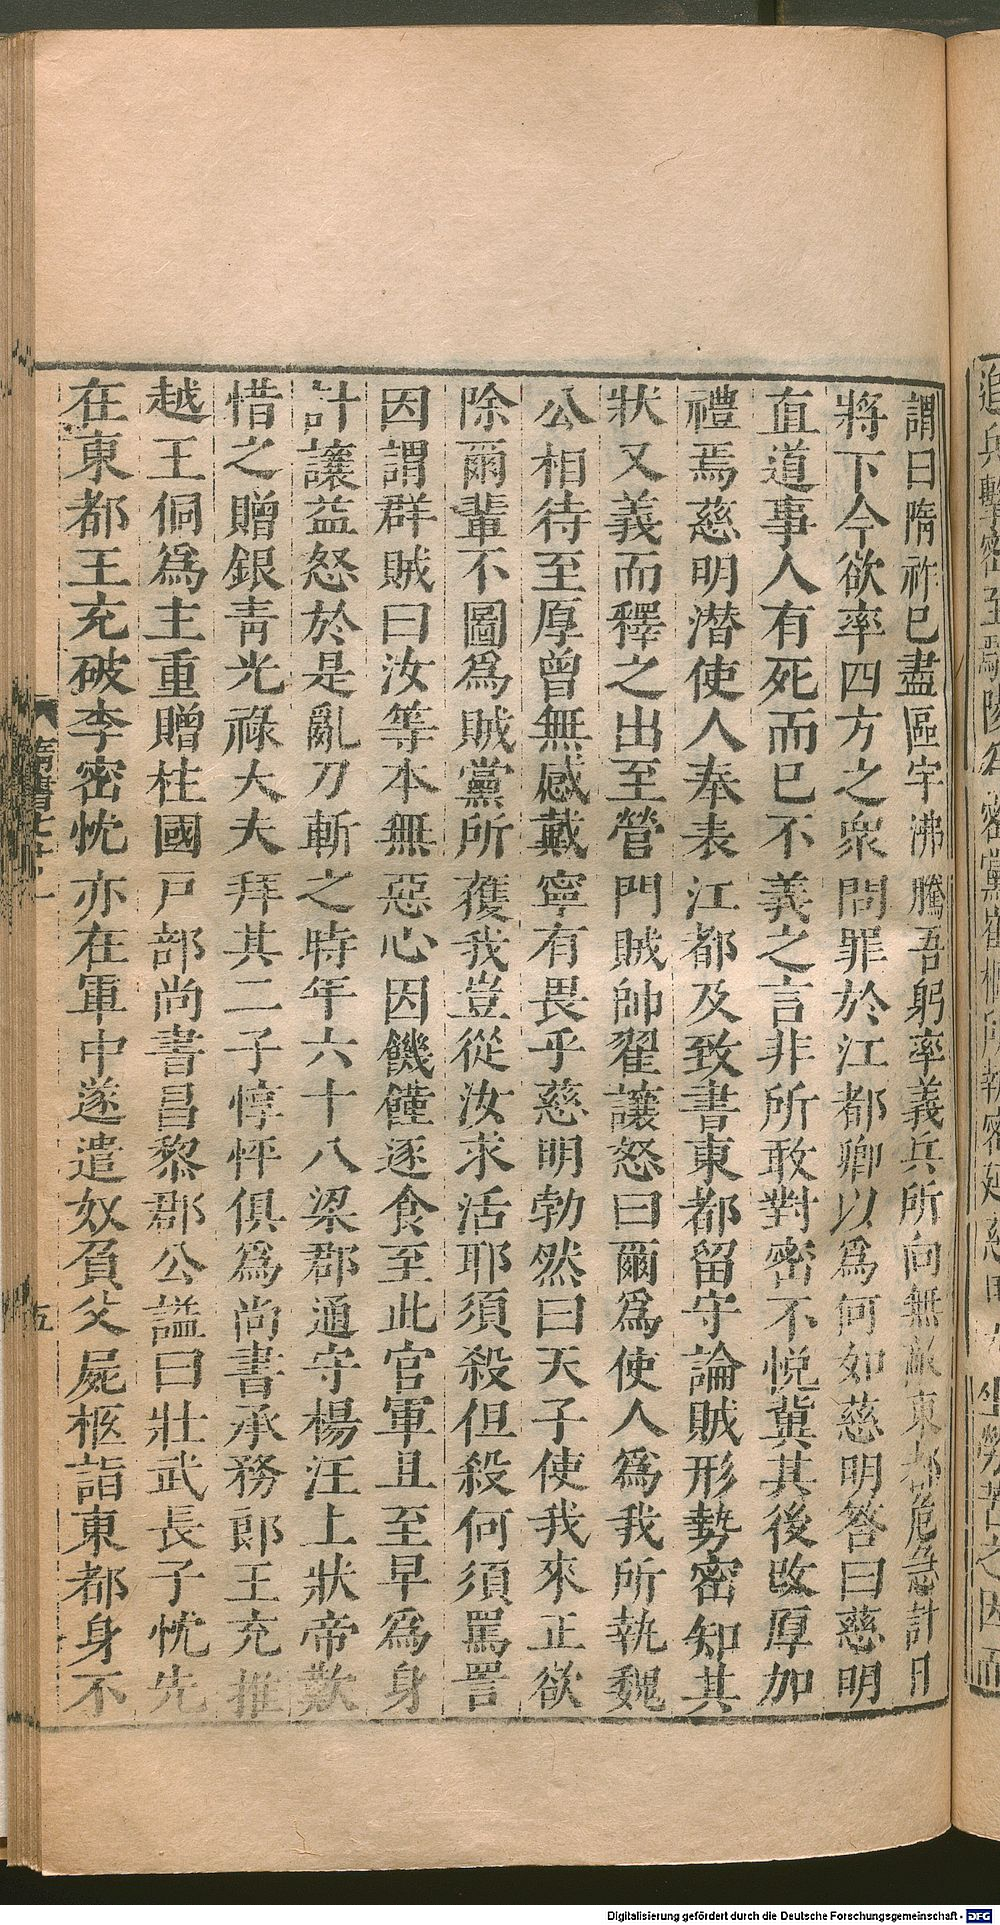 謂曰隋祚已盡區宇沸騰吾躬率義兵所向無敵東都危急計日
將下今欲率四方之衆問罪於江都卿以爲何如慈明答曰慈明
直道事人有死而已不義之言非所敢對密不悅冀其後改厚加
禮焉慈明潜使人奉表江都及致書東都留守論賊形勢密知其
狀又義而釋之出至營門賊帥翟讓怒曰爾爲使人爲我所執魏
公相待至厚曾無感戴寧有畏乎慈明勃然曰天子使我來正欲
除爾輩不圖爲賊黨所獲我豈從汝求活耶須殺但殺何須罵詈
因謂群賊曰汝等本無惡心因饑饉逐食至此官軍且至早爲身
計讓益怒於是亂刀斬之時年六十八梁郡通守楊汪上狀帝歎
惜之贈銀靑光祿大夫拜其二子惇怦俱爲尚書承務郎王充推
越王侗爲主重贈柱國戶部尚書昌黎郡公謚曰壯武長子忱先
在東都王充破李密忱亦在軍中遂遣奴負父屍柩詣東都身不
隋書七十一
五
Digitalisierung gefördert durch die Deutsche Forschungsgemeinschaft - DFG